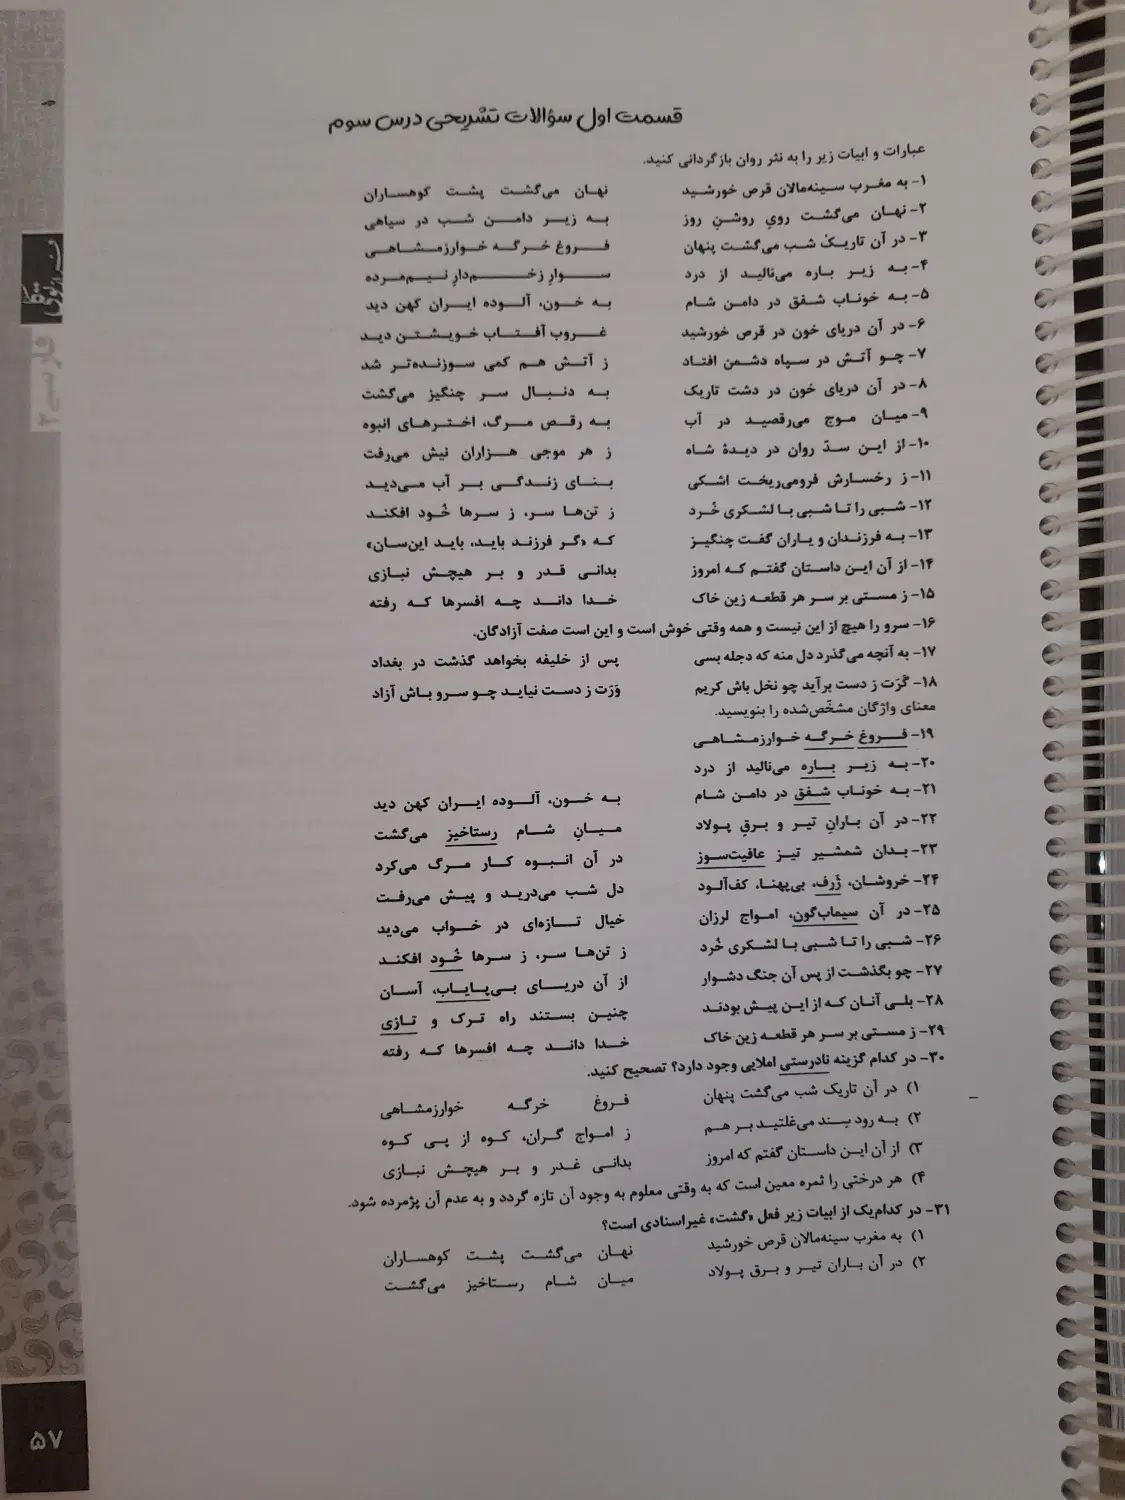 قسمت اول سؤالات تشریحی درس سوم
عبارات و ابیات زیر را به نثر روان بازگردانی کنید.
۱- به مغرب سینه‌مالان قرص خورشید نهان می‌گشت پشت کوهساران
۲- نهان می‌گشت رویِ روشنِ روز به زیر دامن شب در سیاهی
۳- در آن تاریکْ شب می‌گشت پنهان فروغ خرگه خوارزمشاهی
۴- به زیر باره می‌نالید از درد سوارِ زخم‌دارِ نیم‌مرده
۵- به خوناب شفق در دامن شام به خون، آلوده ایران کهن دید
۶- در آن دریای خون در قرص خورشید غروب آفتاب خویشتن دید
۷- چو آتش در سپاه دشمن افتاد ز آتش هم کمی سوزنده‌تر شد
۸- در آن دریای خون در دشت تاریک به دنبال سر چنگیز می‌گشت
۹- میان موج می‌رقصید در آب به رقص مرگ، اخترهای انبوه
۱۰- از این سدّ روان در دیدهٔ شاه ز هر موجی هزاران نیش می‌رفت
۱۱- ز رخسارش فرومی‌ریخت اشکی بنای زندگی بر آب می‌دید
۱۲- شبی را تا شبی با لشکری خُرد ز تن‌ها سر، ز سرها خُود افکند
۱۳- به فرزندان و یاران گفت چنگیز که «گر فرزند باید، باید این‌سان»
۱۴- از آن این داستان گفتم که امروز بدانی قدر و بر هیچش نبازی
۱۵- ز مستی بر سر هر قطعه زین خاک خدا داند چه افسرها که رفته
۱۶- سرو را هیچ از این نیست و همه وقتی خوش است و این است صفت آزادگان.
۱۷- به آنچه می‌گذرد دل منه که دجله بسی پس از خلیفه بخواهد گذشت در بغداد
۱۸- گَرَت ز دست برآید چو نخل باش کریم وَرَت ز دست نیاید چو سرو باش آزاد
معنای واژگان مشخّص‌شده را بنویسید.
۱۹- فروغ خرگه خوارزمشاهی
۲۰- به زیر باره می‌نالید از درد
۲۱- به خوناب شفق در دامن شام به خون، آلوده ایران کهن دید
۲۲- در آن بارانِ تیر و برقِ پولاد میانِ شام رستاخیز می‌گشت
۲۳- بدان شمشیر تیز عافیت‌سوز در آن انبوه کار مرگ می‌کرد
۲۴- خروشان، ژرف، بی‌پهنا، کف‌آلود دل شب می‌درید و پیش می‌رفت
۲۵- در آن سیماب‌گون، امواج لرزان خیال تازه‌ای در خواب می‌دید
۲۶- شبی را تا شبی با لشکری خُرد ز تن‌ها سر، ز سرها خُود افکند
۲۷- چو بگذشت از پس آن جنگ دشوار از آن دریای بی‌پایاب، آسان
۲۸- بلی آنان که از این پیش بودند چنین بستند راه ترک و تازی
۲۹- ز مستی بر سر هر قطعه زین خاک خدا داند چه افسرها که رفته
۳۰- در کدام گزینه نادرستی املایی وجود دارد؟ تصحیح کنید.
۱) در آن تاریک شب می‌گشت پنهان فروغ خرگه خوارزمشاهی
۲) به رود سِند می‌غلتید بر هم ز امواج گران، کوه از پی کوه
۳) از آن این داستان گفتم که امروز بدانی غدر و بر هیچش نبازی
۴) هر درختی را ثمره معین است که به وقتی معلوم به وجود آن تازه گردد و به عدم آن پژمرده شود.
۳۱- در کدام‌یک از ابیات زیر فعل «گشت» غیراسنادی است؟
۱) به مغرب سینه‌مالان قرص خورشید نهان می‌گشت پشت کوهساران
۲) در آن باران تیر و برق پولاد میان شام رستاخیز می‌گشت
فارسی ۲
۵۷